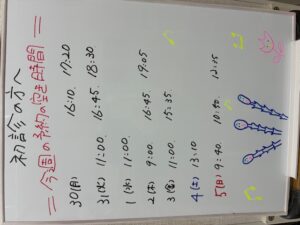 初診の方へ
＝今週の予約の空き時間＝
30(月) 16:10. 17:20
31(火) 11:00. 16:45. 18:30
1(水) 11:00.
2(木) 9:00. 16:45. 19:05
3(金) 11:00. 15:35.
4(土) 13:10
5(日) 9:40. 10:50. 12:15